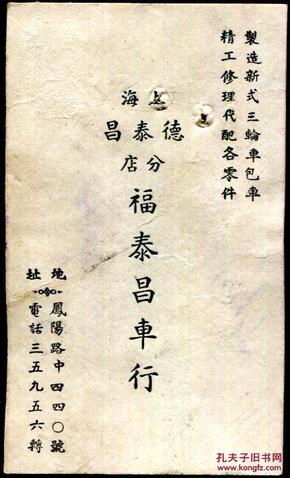 製造新式三輪車包車
精工修理代配各零件
上海
德泰昌
分店
福泰昌車行
地址
鳳陽路中四四〇號
電話三五九五六轉
孔夫子旧书网